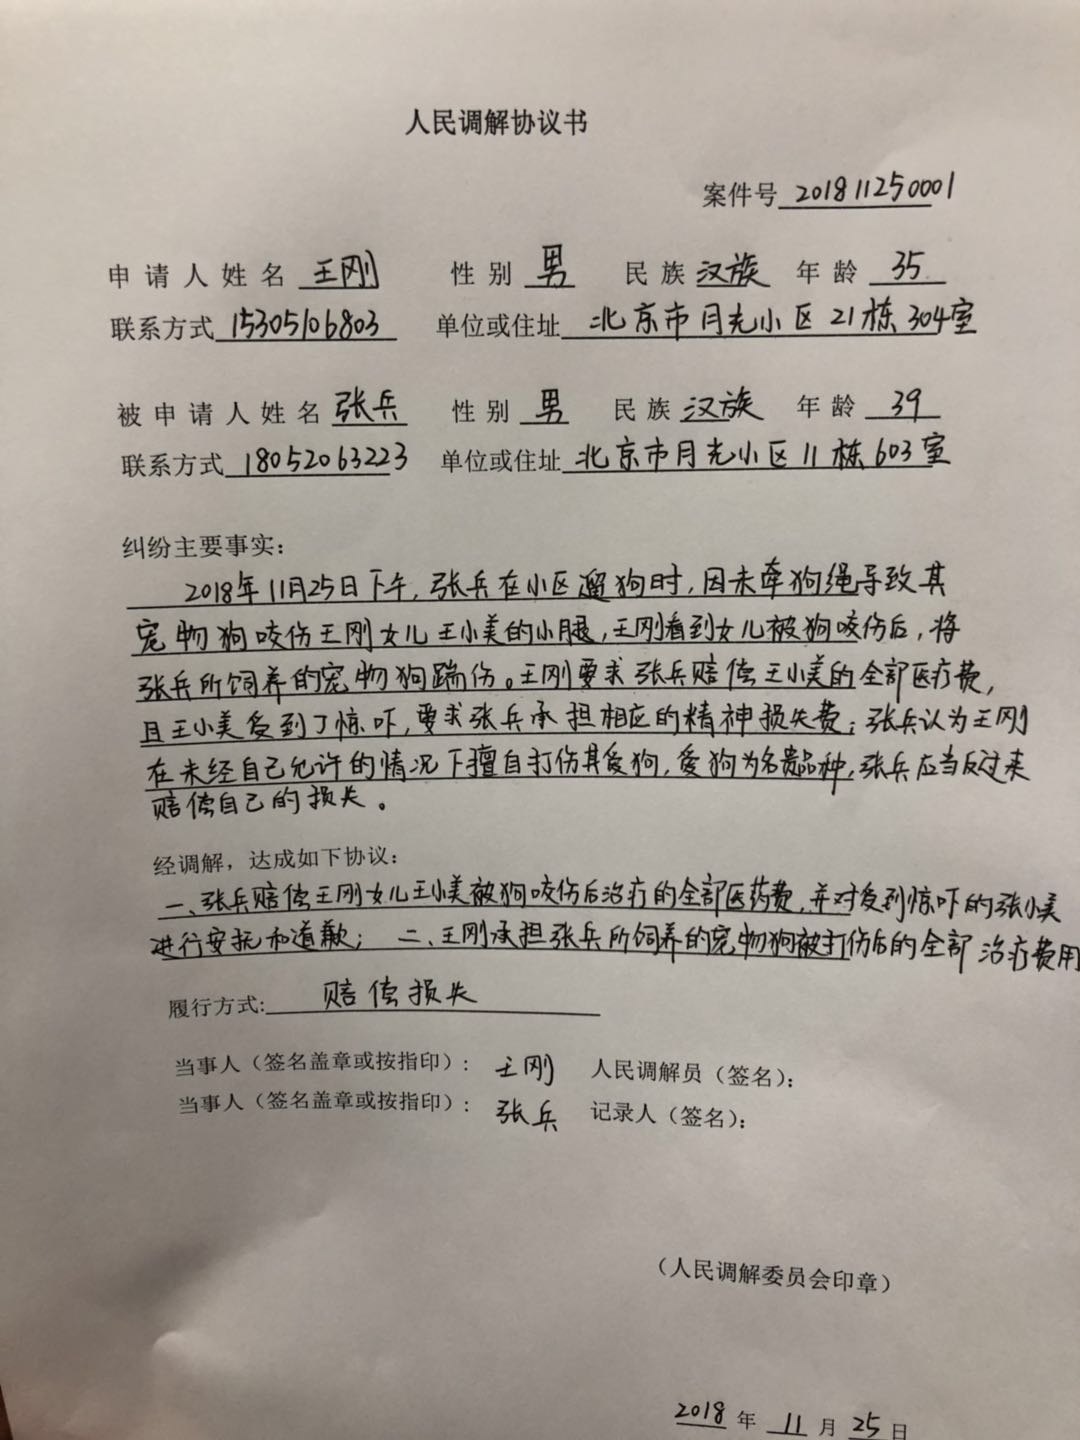 人民调解协议书
案件号 201811250001
申请人姓名 王刚 性别 男 民族 汉族 年龄 35
联系方式 15305106803 单位或住址 北京市月光小区21栋304室
被申请人姓名 张兵 性别 男 民族 汉族 年龄 39
联系方式 18052063223 单位或住址 北京市月光小区11栋603室
纠纷主要事实：
2018年11月25日下午，张兵在小区遛狗时，因未牵狗绳导致其
宠物狗咬伤王刚女儿王小美的小腿，王刚看到女儿被狗咬伤后，将
张兵所饲养的宠物狗踹伤。王刚要求张兵赔偿王小美的全部医疗费，
且王小美受到了惊吓，要求张兵承担相应的精神损失费；张兵认为王刚
在未经自己允许的情况下擅自打伤其爱狗，爱狗为名贵品种，张兵应当反过来
赔偿自己的损失。
经调解，达成如下协议：
一、张兵赔偿王刚女儿王小美被狗咬伤后治疗的全部医药费，并对受到惊吓的张小美
进行安抚和道歉； 二、王刚承担张兵所饲养的宠物狗被打伤后的全部治疗费用
履行方式: 赔偿损失
当事人（签名盖章或按指印）： 王刚 人民调解员（签名）：
当事人（签名盖章或按指印）： 张兵 记录人（签名）：
（人民调解委员会印章）
2018 年 11 月 25 日